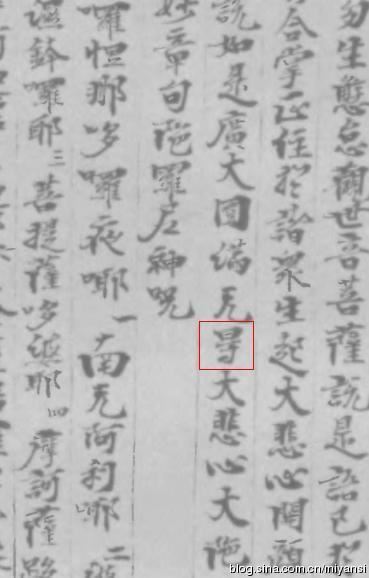 勿生懈怠觀世音菩薩說是語已於
合掌正住於諸衆生起大悲心開顔
說如是廣大圓滿无㝵大悲心大陁
妙章句陁羅尼神呪
囉怛那哆囉夜哪一 南无阿利哪二
鉢囉耶三 菩提薩哆婆耶四 摩訶薩
blog.sina.com.cn/miyansi